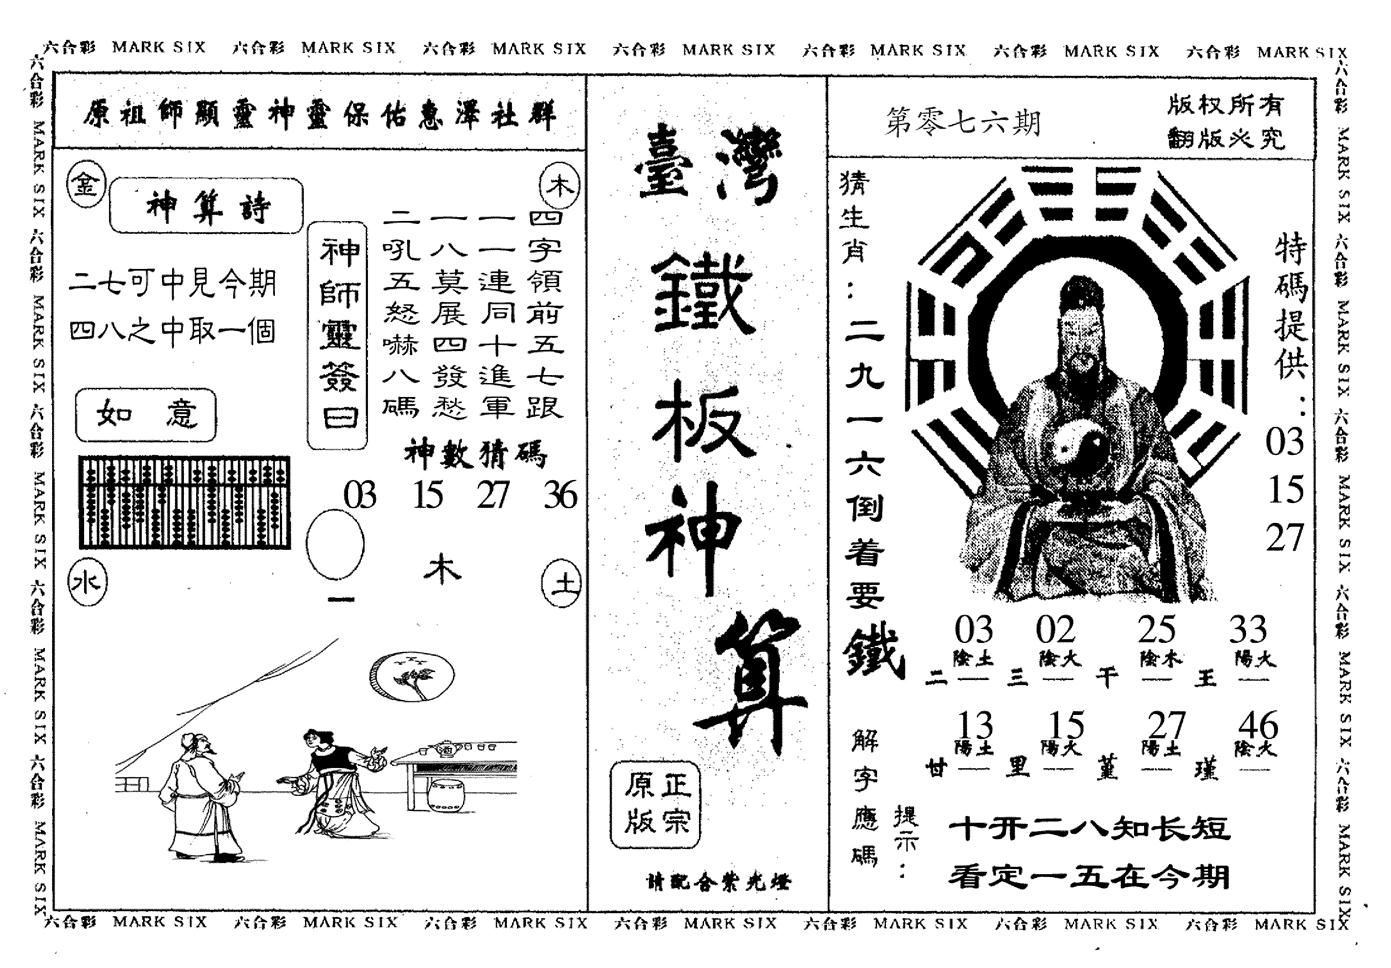 六合彩 MARK SIX 六合彩 MARK SIX 六合彩 MARK SIX 六合彩 MARK SIX 六合彩 MARK SIX 六合彩 MARK SIX 六合彩 MARK SIX
六合彩 MARK SIX 六合彩 MARK SIX 六合彩 MARK SIX 六合彩 MARK SIX 六合彩 MARK SIX
原祖師顯靈神靈保佑惠澤社群
金
木
神算詩
二七可中見今期
四八之中取一個
如意
神師靈簽曰
四字領前五七跟
一一連同十進軍
一八莫展四發愁
二吼五怒嚇八碼
神數猜碼
03 15 27 36
水
一
木
土
臺灣
鐵
板
神
算
正宗
原版
請配合紫光燈
第零七六期
版权所有
翻版必究
猜生肖：二九一六倒着要
鐵
特碼提供：
03
15
27
03 02 25 33
陰土 陰火 陰木 陽火
二 三 干 王
13 15 27 46
陽土 陽火 陽土 陰火
廿 里 堇 瑾
解字應碼
提示：
十开二八知长短
看定一五在今期
六合彩 MARK SIX 六合彩 MARK SIX 六合彩 MARK SIX 六合彩 MARK SIX 六合彩 MARK SIX
六合彩 MARK SIX 六合彩 MARK SIX 六合彩 MARK SIX 六合彩 MARK SIX 六合彩 MARK SIX 六合彩 MARK SIX 六合彩 MARK SIX